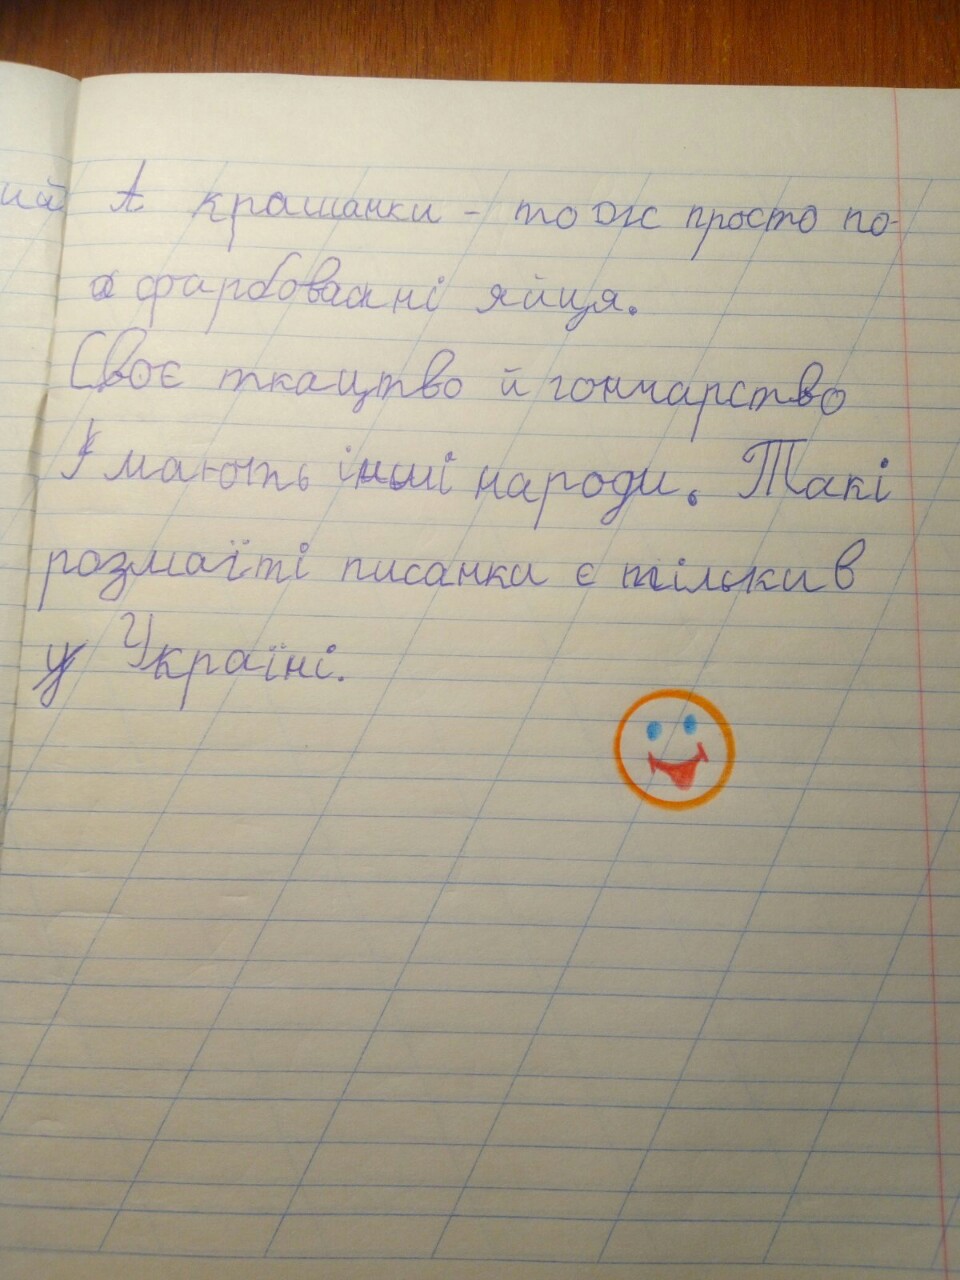 ий А крашанки - то ж просто по-
фарбовані яйця.
Своє ткацтво й гончарство
мають інші народи. Такі
розмаїті писанки є тільки в
Україні.